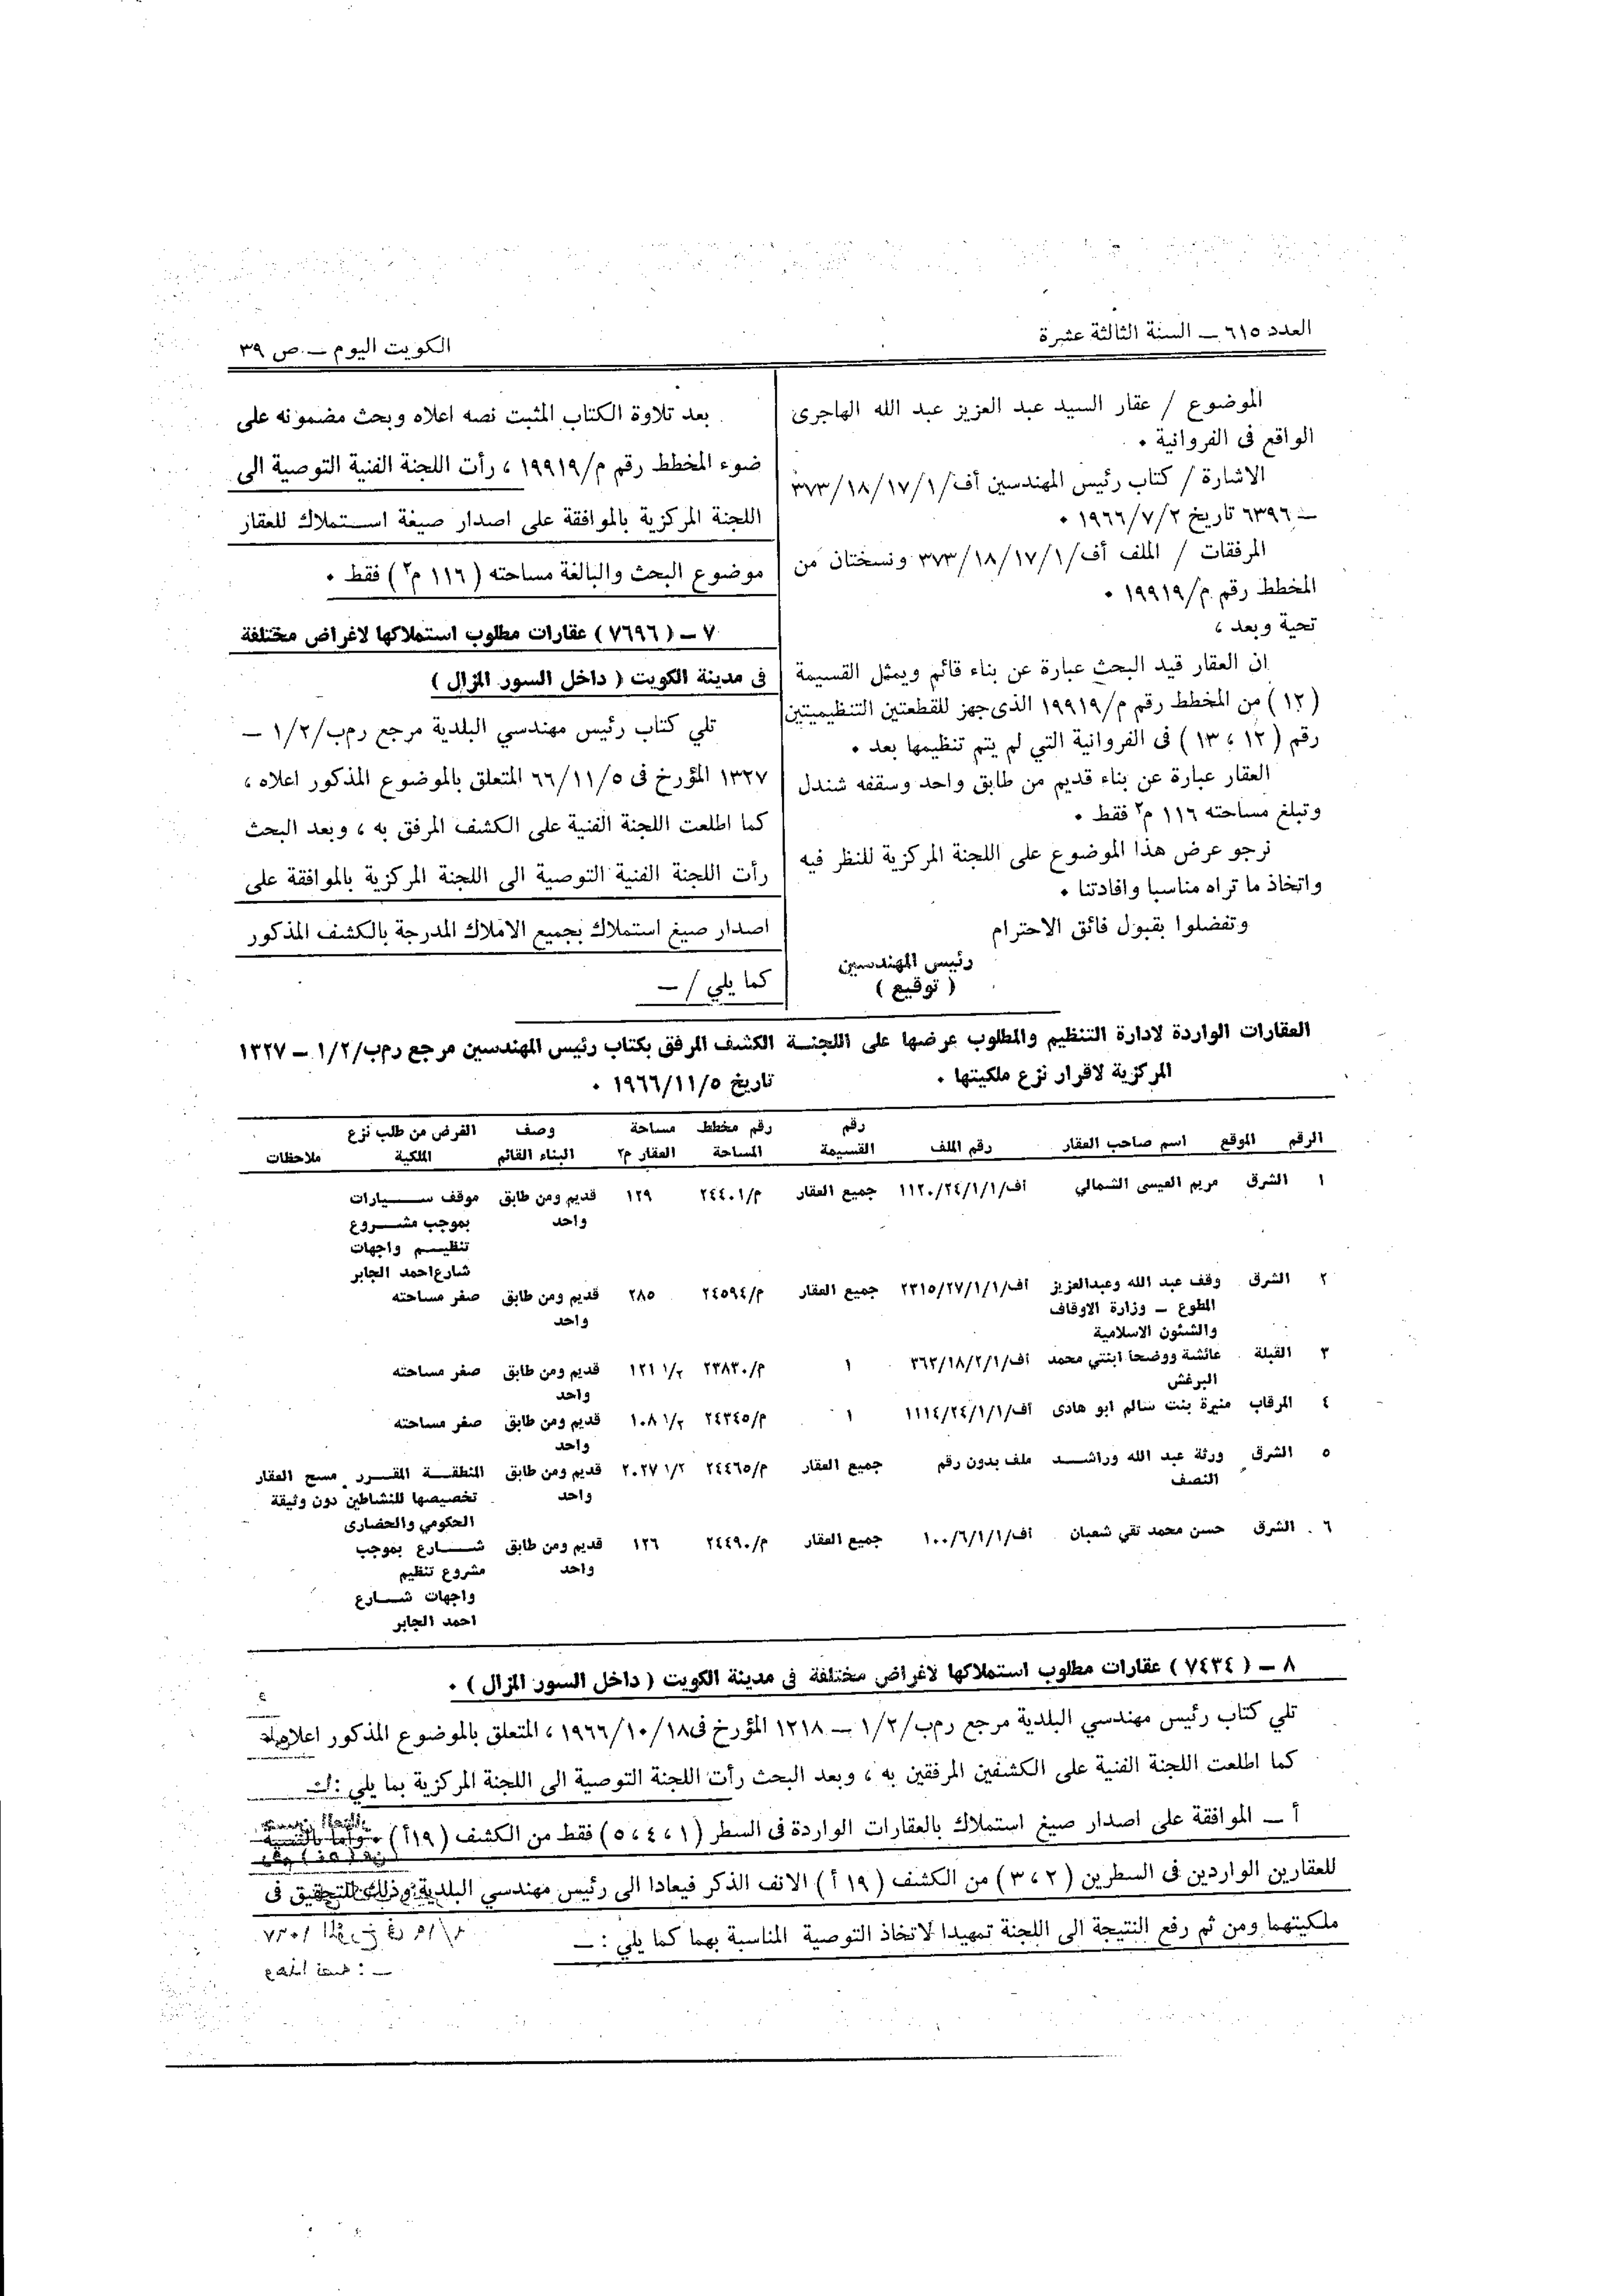 العدد ٦١٥ — السنة الثالثة عشرة
الكويت اليوم — ص ٣٩
الموضوع / عقار السيد عبد العزيز عبد الله الهاجرى
الواقع فى الفروانية •
الاشارة / كتاب رئيس المهندسين أف/٣٧٣/١٨/١٧/١
— ٦٣٩٦ تاريخ ١٩٦٦/٧/٢ •
المرفقات / الملف أف/٣٧٣/١٨/١٧/١ ونسختان من
المخطط رقم م/١٩٩١٩ •
تحية وبعد ،
ان العقار قيد البحث عبارة عن بناء قائم ويمثل القسيمة
( ١٢ ) من المخطط رقم م/١٩٩١٩ الذى جهز للقطعتين التنظيميتين
رقم ( ١٢ ، ١٣ ) فى الفروانية التي لم يتم تنظيمها بعد •
العقار عبارة عن بناء قديم من طابق واحد وسقفه شندل
وتبلغ مساحته ١١٦ م٢ فقط •
نرجو عرض هذا الموضوع على اللجنة المركزية للنظر فيه
واتخاذ ما تراه مناسبا وافادتنا •
وتفضلوا بقبول فائق الاحترام
رئيس المهندسين
( توقيع )
بعد تلاوة الكتاب المثبت نصه اعلاه وبحث مضمونه على
ضوء المخطط رقم م/١٩٩١٩ ، رأت اللجنة الفنية التوصية الى
اللجنة المركزية بالموافقة على اصدار صيغة استملاك للعقار
موضوع البحث والبالغة مساحته ( ١١٦ م٢ ) فقط •
٧ — ( ٧٦٩٦ ) عقارات مطلوب استملاكها لاغراض مختلفة
فى مدينة الكويت ( داخل السور المزال )
تلي كتاب رئيس مهندسي البلدية مرجع رم‌ب/١/٢ —
١٣٢٧ المؤرخ فى ٦٦/١١/٥ المتعلق بالموضوع المذكور اعلاه ،
كما اطلعت اللجنة الفنية على الكشف المرفق به ، وبعد البحث
رأت اللجنة الفنية التوصية الى اللجنة المركزية بالموافقة على
اصدار صيغ استملاك بجميع الاملاك المدرجة بالكشف المذكور
كما يلي / —
العقارات الواردة لادارة التنظيم والمطلوب عرضها على اللجنة
المركزية لاقرار نزع ملكيتها •
الكشف المرفق بكتاب رئيس المهندسين مرجع رم‌ب/١/٢ — ١٣٢٧
تاريخ ١٩٦٦/١١/٥ •
الرقم الموقع اسم صاحب العقار رقم الملف رقم القسيمة رقم مخطط المساحة مساحة العقار م٢ وصف البناء القائم الغرض من طلب نزع الملكية ملاحظات
١ الشرق مريم العيسى الشمالي أف/١١٢٠/٢٤/١/١ جميع العقار م/٢٤٤٠١ ١٢٩ قديم ومن طابق موقف سيارات
واحد بموجب مشروع
تنظيم واجهات
شارع احمد الجابر
٢ الشرق وقف عبد الله وعبدالعزيز أف/٢٣١٥/٢٧/١/١ جميع العقار م/٢٤٥٩٤ ٢٨٥ قديم ومن طابق صغر مساحته
المطوع — وزارة الاوقاف واحد
والشئون الاسلامية
٣ القبلة عائشة ووضحا ابنتي محمد أف/٣٦٢/١٨/٢/١ ١ م/٢٣٨٣٠ ١/٢ ١٢١ قديم ومن طابق صغر مساحته
البرغش واحد
٤ المرقاب منيرة بنت سالم ابو هادى أف/١١١٤/٢٤/١/١ ١ م/٢٤٣٤٥ ١/٢ ١٠٨ قديم ومن طابق صغر مساحته
واحد
٥ الشرق ورثة عبد الله وراشد ملف بدون رقم جميع العقار م/٢٤٤٦٥ ١/٢ ٢٠٢٧ قديم ومن طابق المنطقة المقرر مسح العقار
النصف واحد تخصيصها للنشاطين دون وثيقة
الحكومي والحضارى
٦ الشرق حسن محمد تقي شعبان أف/١٠٠/٦/١/١ جميع العقار م/٢٤٤٩٠ ١٢٦ قديم ومن طابق شارع بموجب
واحد مشروع تنظيم
واجهات شارع
احمد الجابر
٨ — ( ٧٤٣٤ ) عقارات مطلوب استملاكها لاغراض مختلفة فى مدينة الكويت ( داخل السور المزال ) •
تلي كتاب رئيس مهندسي البلدية مرجع رم‌ب/١/٢ — ١٢١٨ المؤرخ فى ١٩٦٦/١٠/١٨ ، المتعلق بالموضوع المذكور اعلاه
كما اطلعت اللجنة الفنية على الكشفين المرفقين به ، وبعد البحث رأت اللجنة التوصية الى اللجنة المركزية بما يلي : —
أ — الموافقة على اصدار صيغ استملاك بالعقارات الواردة فى السطر ( ١ ، ٤ ، ٥ ) فقط من الكشف ( ١٩أ ) • وأما بالنسبة
للعقارين الواردين فى السطرين ( ٢ ، ٣ ) من الكشف ( ١٩ أ ) الانف الذكر فيعادا الى رئيس مهندسي البلدية وذلك للتحقيق فى
ملكيتهما ومن ثم رفع النتيجة الى اللجنة تمهيدا لاتخاذ التوصية المناسبة بهما كما يلي : —